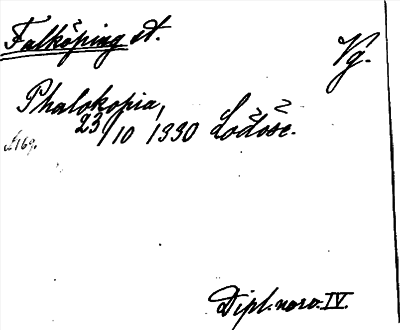 Falköping st. Vg.
Phalokopia,
23/10 1330 Lödöse.
169.
Dipl. norv. IV.